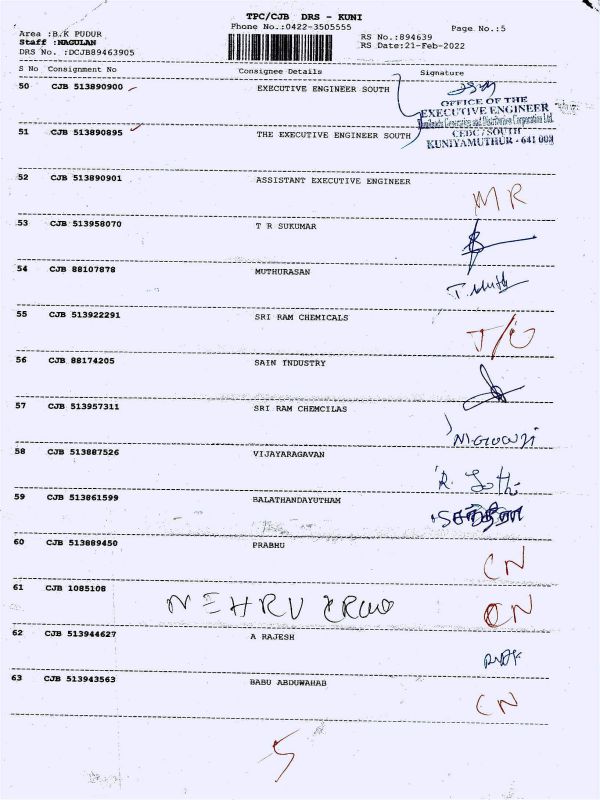 TPC/CJB DRS - KUNI
Phone No.:0422-3505555
Page No.:5
Area :B.K PUDUR
RS No.:894639
Staff :NAGULAN
RS Date:21-Feb-2022
DRS No. :DCJB89463905
S No Consignment No Consignee Details Signature
50 CJB 513890900 EXECUTIVE ENGINEER SOUTH
OFFICE OF THE
EXECUTIVE ENGINEER
Generation and Distribution Corporation Ltd.
CEDC / SOUTH
KUNIYAMUTHUR - 641 008
51 CJB 513890895 THE EXECUTIVE ENGINEER SOUTH
52 CJB 513890901 ASSISTANT EXECUTIVE ENGINEER
MR
53 CJB 513958070 T R SUKUMAR
54 CJB 88107878 MUTHURASAN
T. Muth
55 CJB 513922291 SRI RAM CHEMICALS
56 CJB 88174205 SAIN INDUSTRY
57 CJB 513957311 SRI RAM CHEMCILAS
58 CJB 513887526 VIJAYARAGAVAN
59 CJB 513861599 BALATHANDAYUTHAM
60 CJB 513889450 PRABHU
CN
61 CJB 1085108 NEHRU
CN
62 CJB 513944627 A RAJESH
63 CJB 513943563 BABU ABDUWAHAB
CN
5